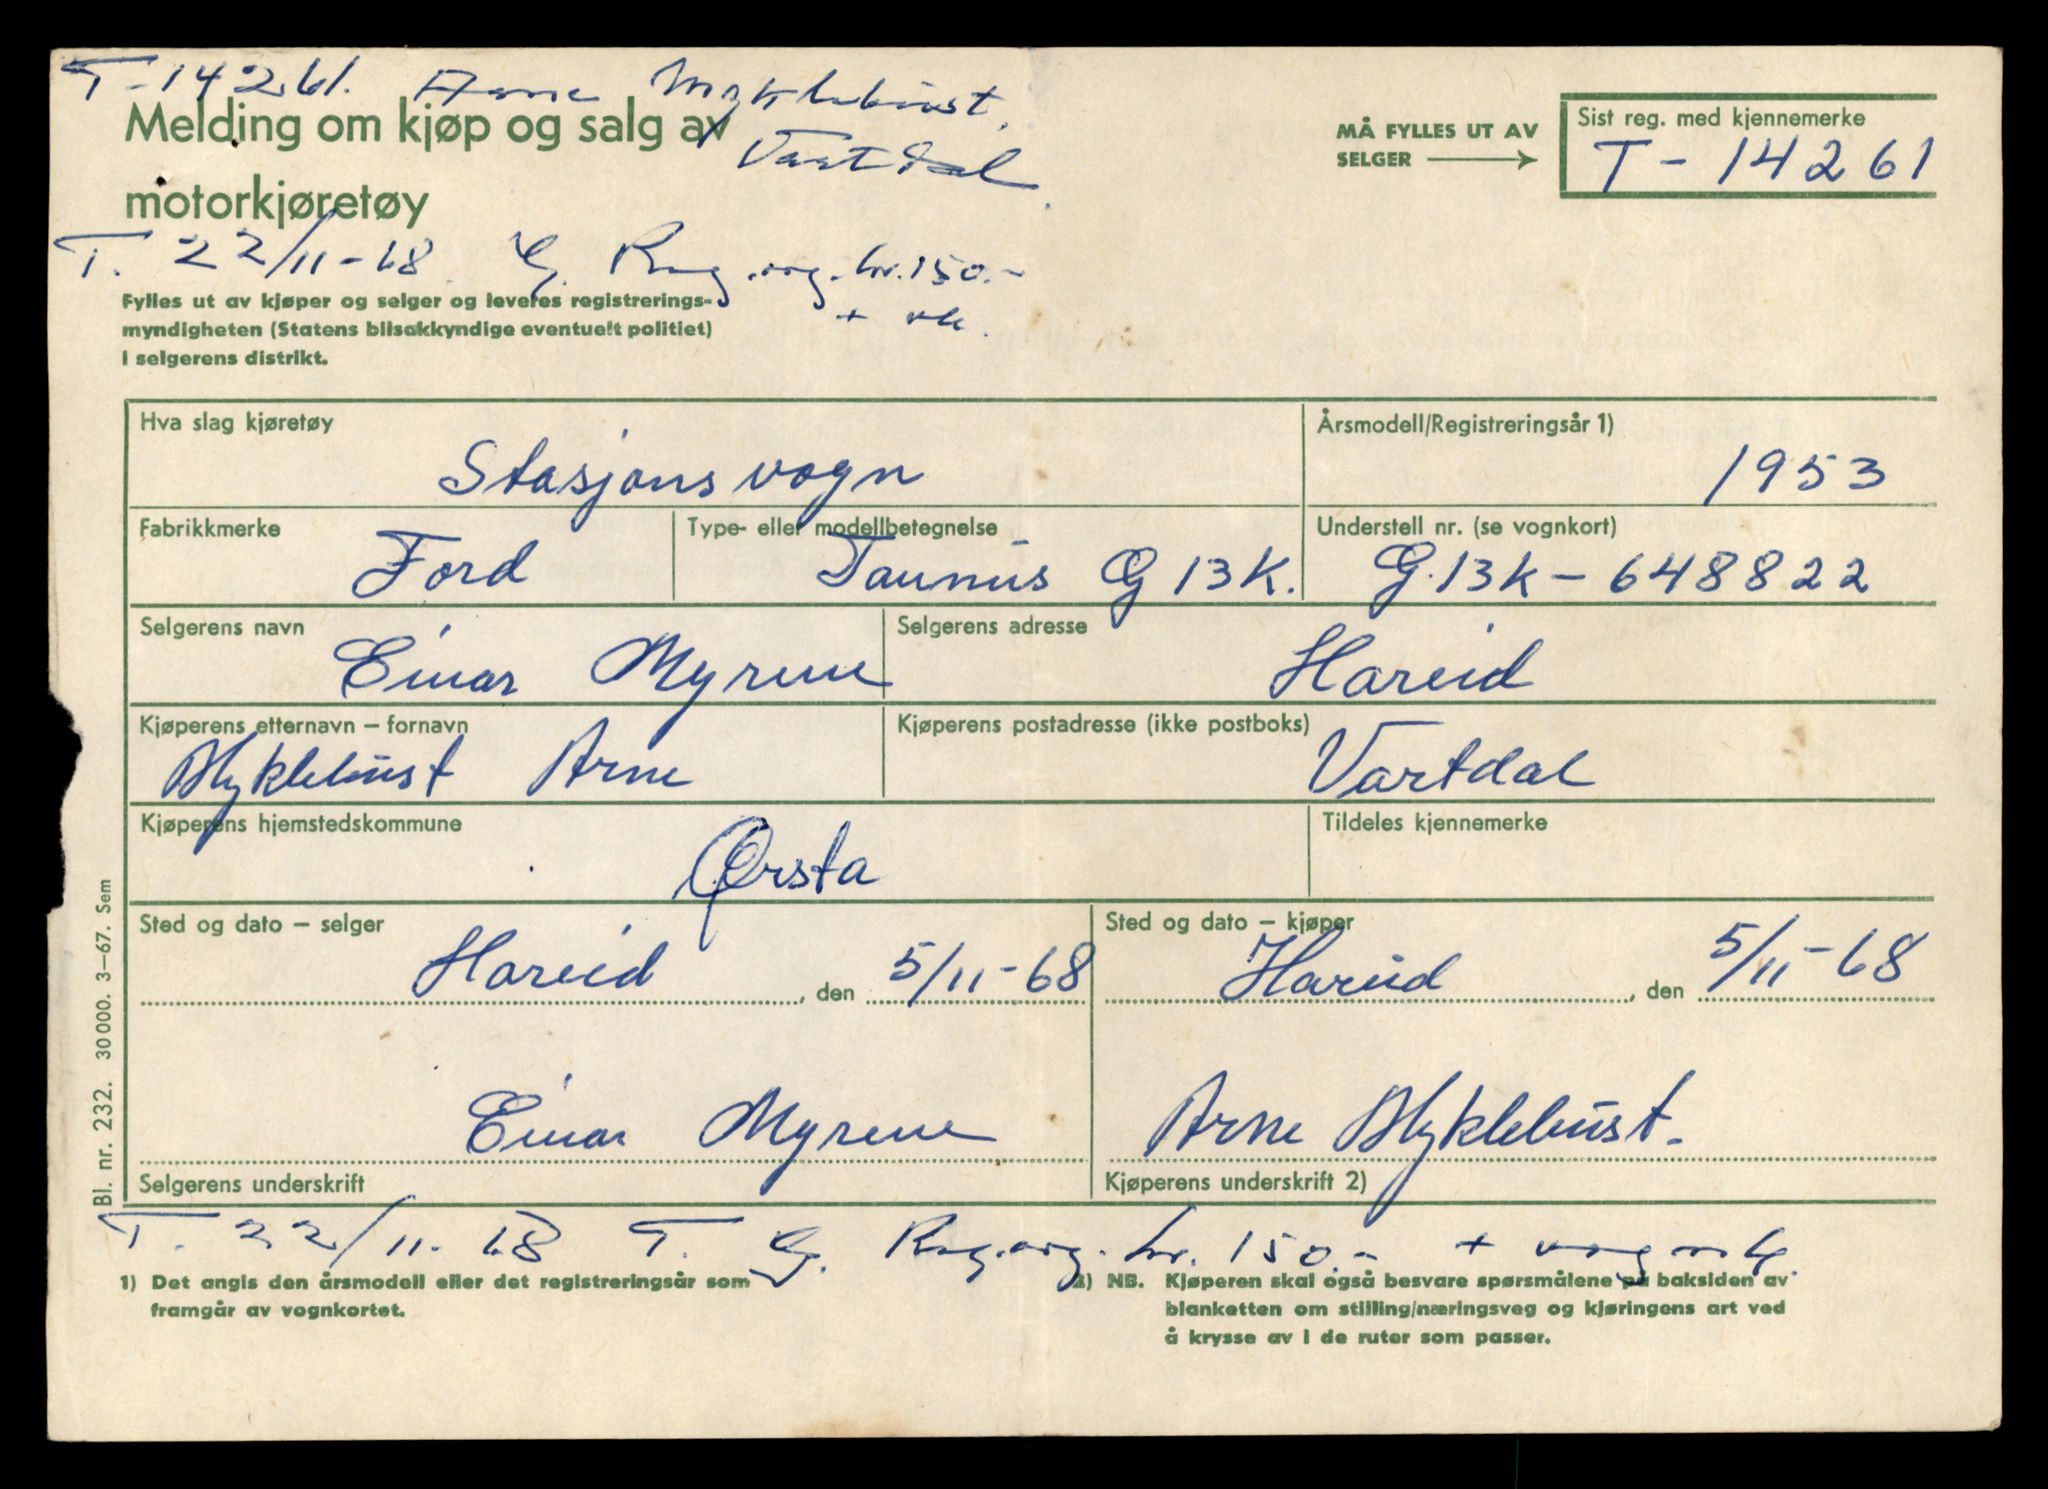 T-14261. Arne Myklebust.
Melding om kjøp og salg av
Vartdal.
motorkjøretøy
MÅ FYLLES UT AV
SELGER
Sist reg. med kjennemerke
T-14261
T. 22/11-68 G. Reg.avg. kr. 150.-
+ vk.
Fylles ut av kjøper og selger og leveres registrerings-
myndigheten (Statens bilsakkyndige eventuelt politiet)
i selgerens distrikt.
Hva slag kjøretøy
Stasjonsvogn
Årsmodell/Registreringsår 1)
1953
Fabrikkmerke
Ford
Type- eller modellbetegnelse
Taunus G 13K.
Understell nr. (se vognkort)
G.13K-648822
Selgerens navn
Einar Myrene
Selgerens adresse
Hareid
Kjøperens etternavn – fornavn
Myklebust Arne
Kjøperens postadresse (ikke postboks)
Vartdal
Kjøperens hjemstedskommune
Ørsta
Tildeles kjennemerke
Sted og dato – selger
Hareid, den 5/11-68
Sted og dato – kjøper
Hareid, den 5/11-68
Einar Myrene
Selgerens underskrift
Arne Myklebust.
Kjøperens underskrift 2)
T. 22/11-68 T. G. Reg.avg. kr. 150.- +
1) Det angis den årsmodell eller det registreringsår som
framgår av vognkortet.
2) NB. Kjøperen skal også besvare spørsmålene på baksiden av
blanketten om stilling/næringsveg og kjøringens art ved
å krysse av i de ruter som passer.
Bl. nr. 232. 30000. 3–67. Sem